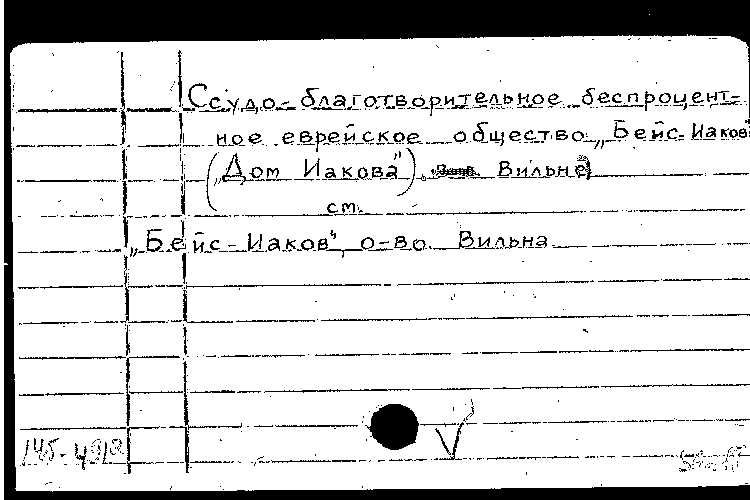 Ссудо-благотворительное беспроцент-
ное еврейское общество „Бейс-Иаков"
(„Дом Иакова"). Вильна
см.
„Бейс-Иаков", о-во. Вильна